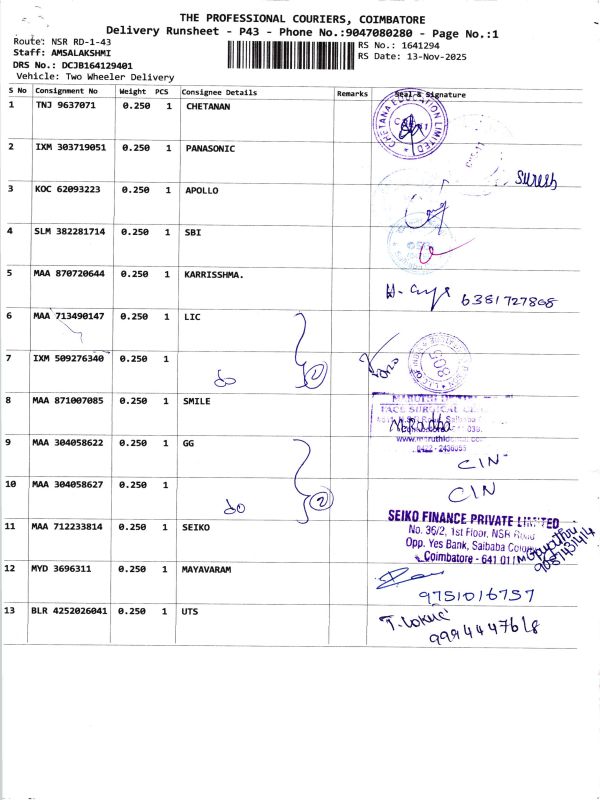 THE PROFESSIONAL COURIERS, COIMBATORE
Delivery Runsheet - P43 - Phone No.:9047080280 - Page No.:1
Route: NSR RD-1-43
Staff: AMSALAKSHMI
DRS No.: DCJB164129401
Vehicle: Two Wheeler Delivery
RS No.: 1641294
RS Date: 13-Nov-2025
S No Consignment No Weight PCS Consignee Details Remarks Seal & Signature
1 TNJ 9637071 0.250 1 CHETANAN
CHETANA EDUCATION LIMITED
2 IXM 303719051 0.250 1 PANASONIC
Suresh
3 KOC 62093223 0.250 1 APOLLO
4 SLM 382281714 0.250 1 SBI
5 MAA 870720644 0.250 1 KARRISSHMA.
6381727808
6 MAA 713490147 0.250 1 LIC
7 IXM 509276340 0.250 1
do 2
805
8 MAA 871007085 0.250 1 SMILE
MARUTHI
FACE SURGICAL
M.Radha
www.maruthidental.com
0422 - 2436055
9 MAA 304058622 0.250 1 GG
CIN
10 MAA 304058627 0.250 1
do 2
CIN
11 MAA 712233814 0.250 1 SEIKO
SEIKO FINANCE PRIVATE LIMITED
No. 36/2, 1st Floor, NSR Road
Opp. Yes Bank, Saibaba Colony
Coimbatore - 641 011
Gayathri
9087431414
12 MYD 3696311 0.250 1 MAYAVARAM
9751016757
13 BLR 4252026041 0.250 1 UTS
9994447618